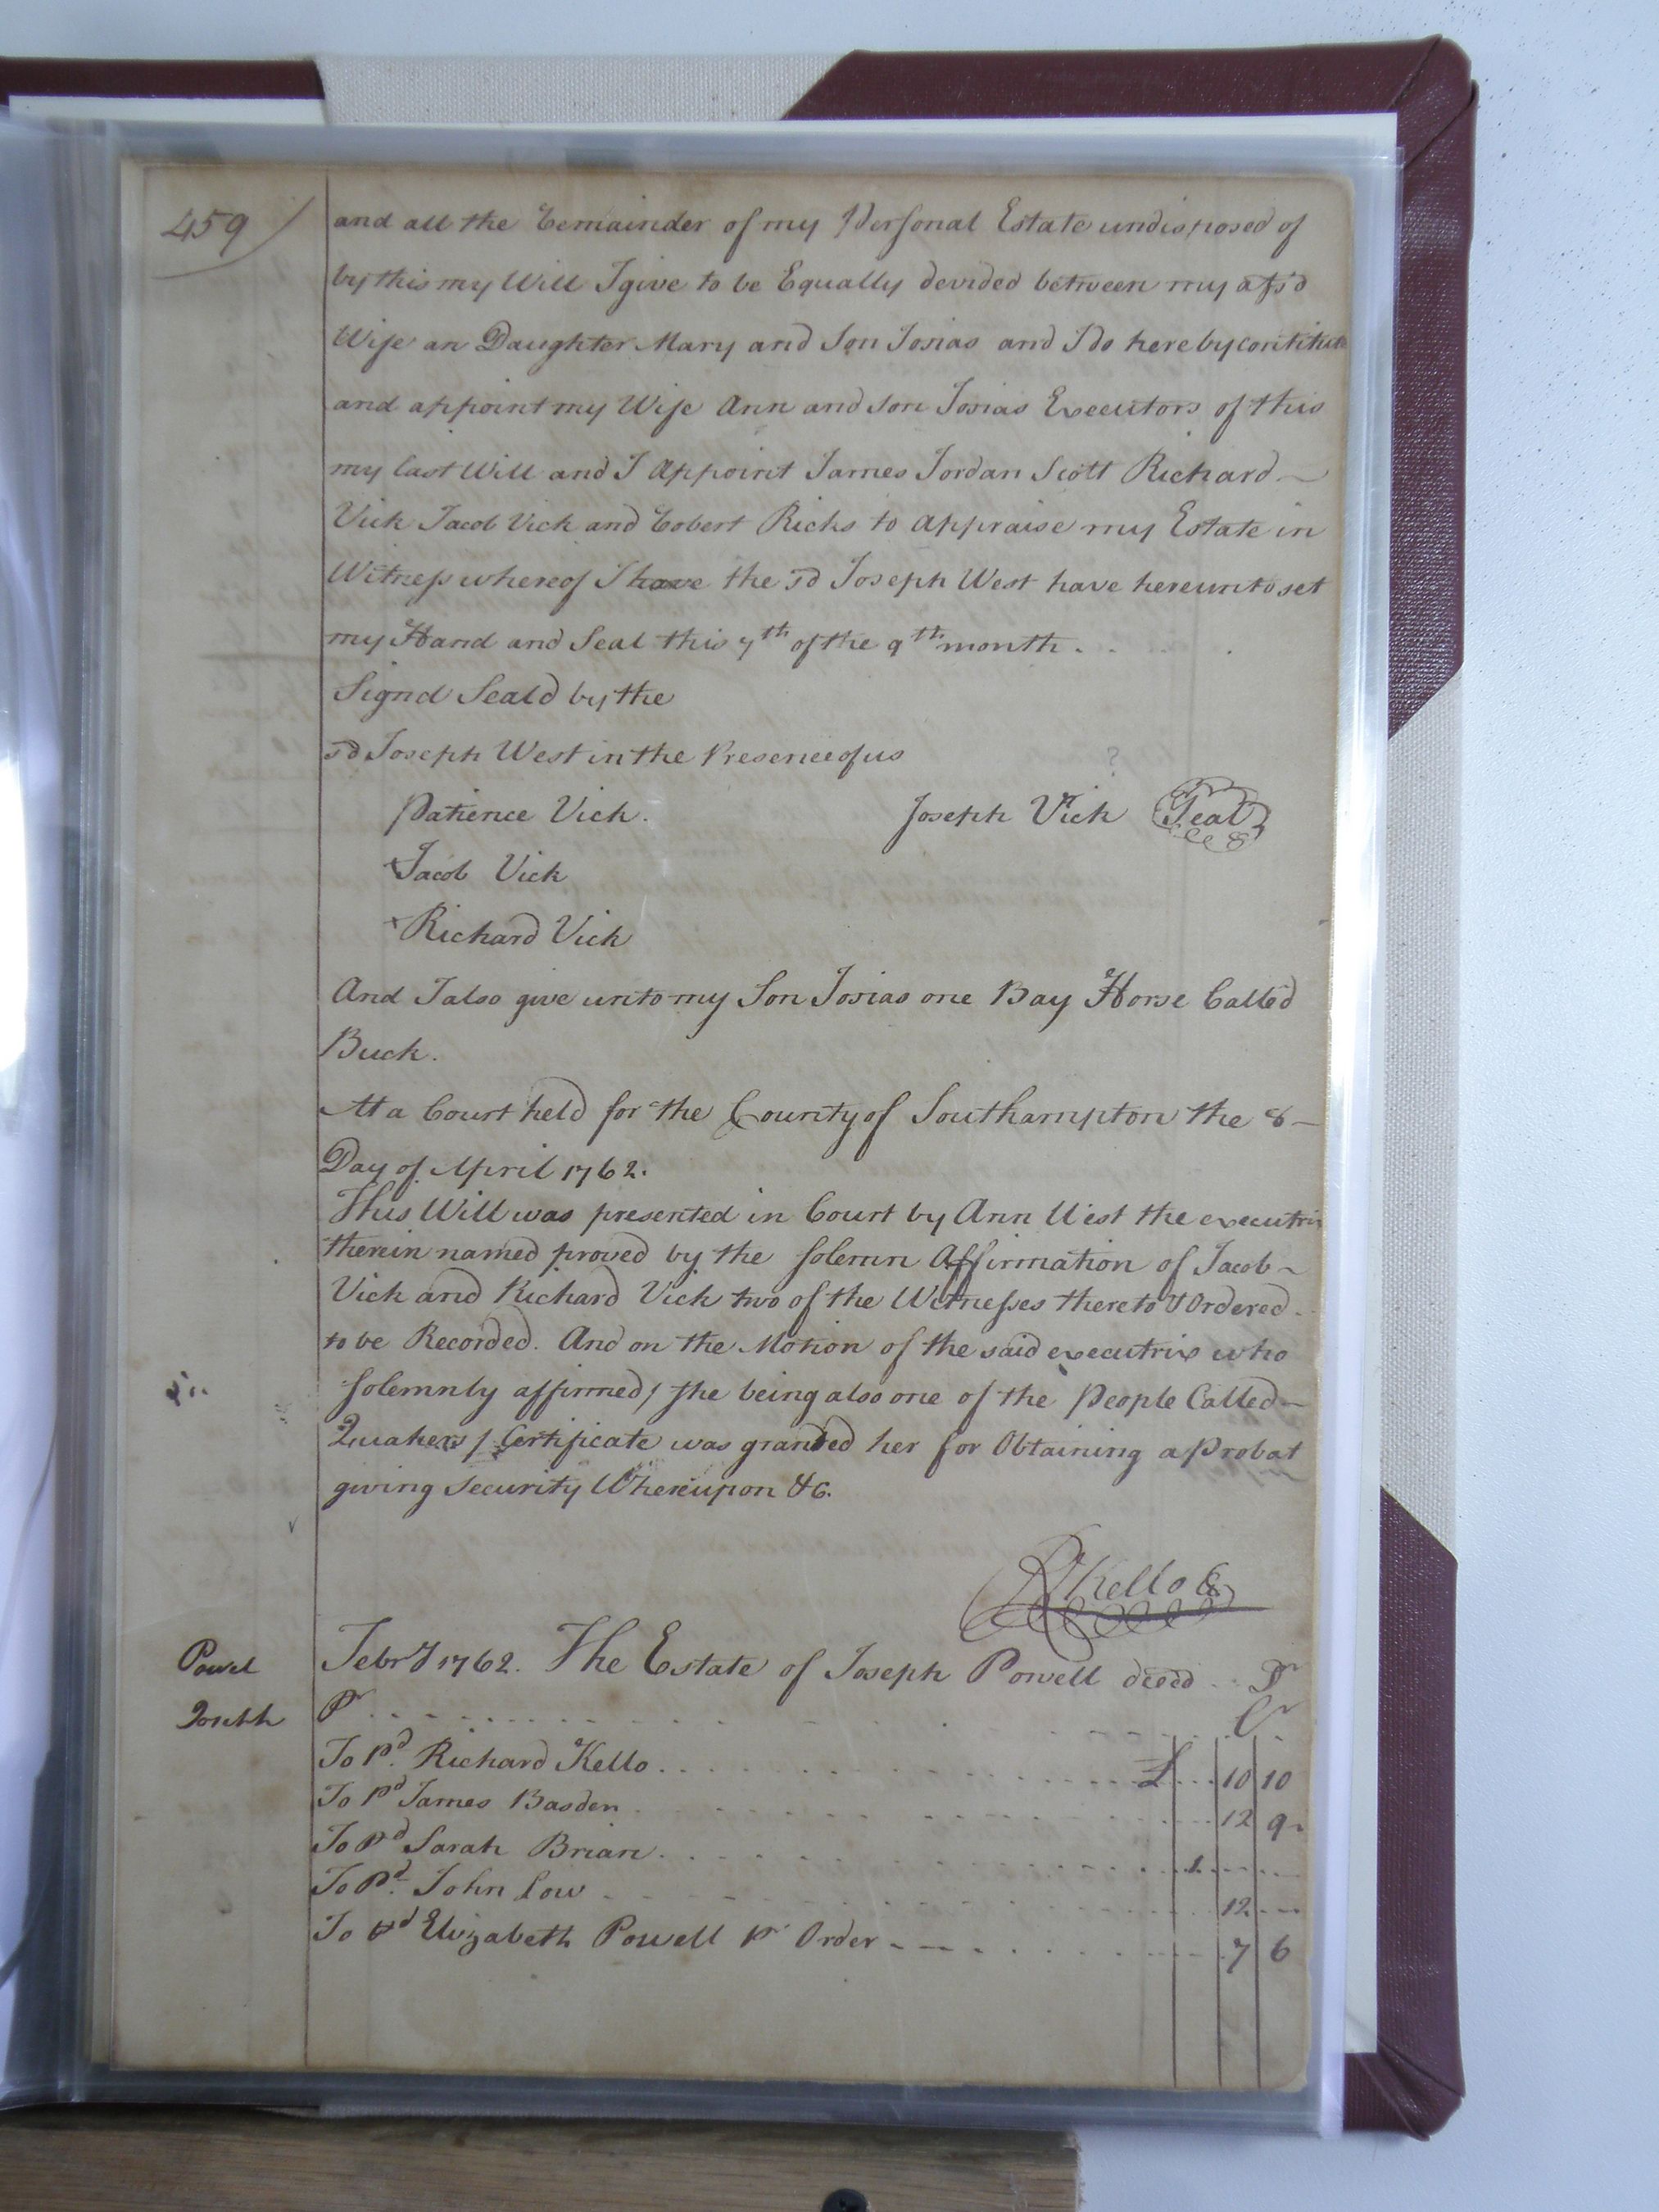 459
and all the Remainder of my Personal Estate undisposed of
by this my Will I give to be Equally devided between my afsd
Wife an Daughter Mary and Son Josias and I do hereby contitute
and appoint my Wife Ann and son Josias Executors of this
my last Will and I Appoint James Jordan Scott Richard
Vick Jacob Vick and Robert Ricks to appraise my Estate in
Witness whereof I have the sd Joseph West have hereunto set
my Hand and Seal this 7th of the 9th month.
Signd Seald by the
sd Joseph West in the Presence of us
?
Patience Vick. Joseph Vick Seal
Jacob Vick
Richard Vick
And I also give unto my Son Josias one Bay Horse Called
Buck.
At a Court held for the County of Southampton the 8
Day of April 1762.
This Will was presented in Court by Ann West the executrix
therein named proved by the solemn Affirmation of Jacob
Vick and Richard Vick two of the Witnesses thereto & Ordered
to be Recorded. And on the Motion of the said executrix who
solemnly affirmed / she being also one of the People Called
Quakers / Certificate was granted her for Obtaining a Probat
giving security Whereupon &c.
R Kello C
Powel Febry 1762. The Estate of Joseph Powell decd Dr
Joseph Pr Cr
To Pd. Richard Kello £ 10 10
To Pd James Basden 12 9
To Pd Sarah Brian 1
To Pd. John Low 12
To Pd Elizabeth Powell pr Order 7 6